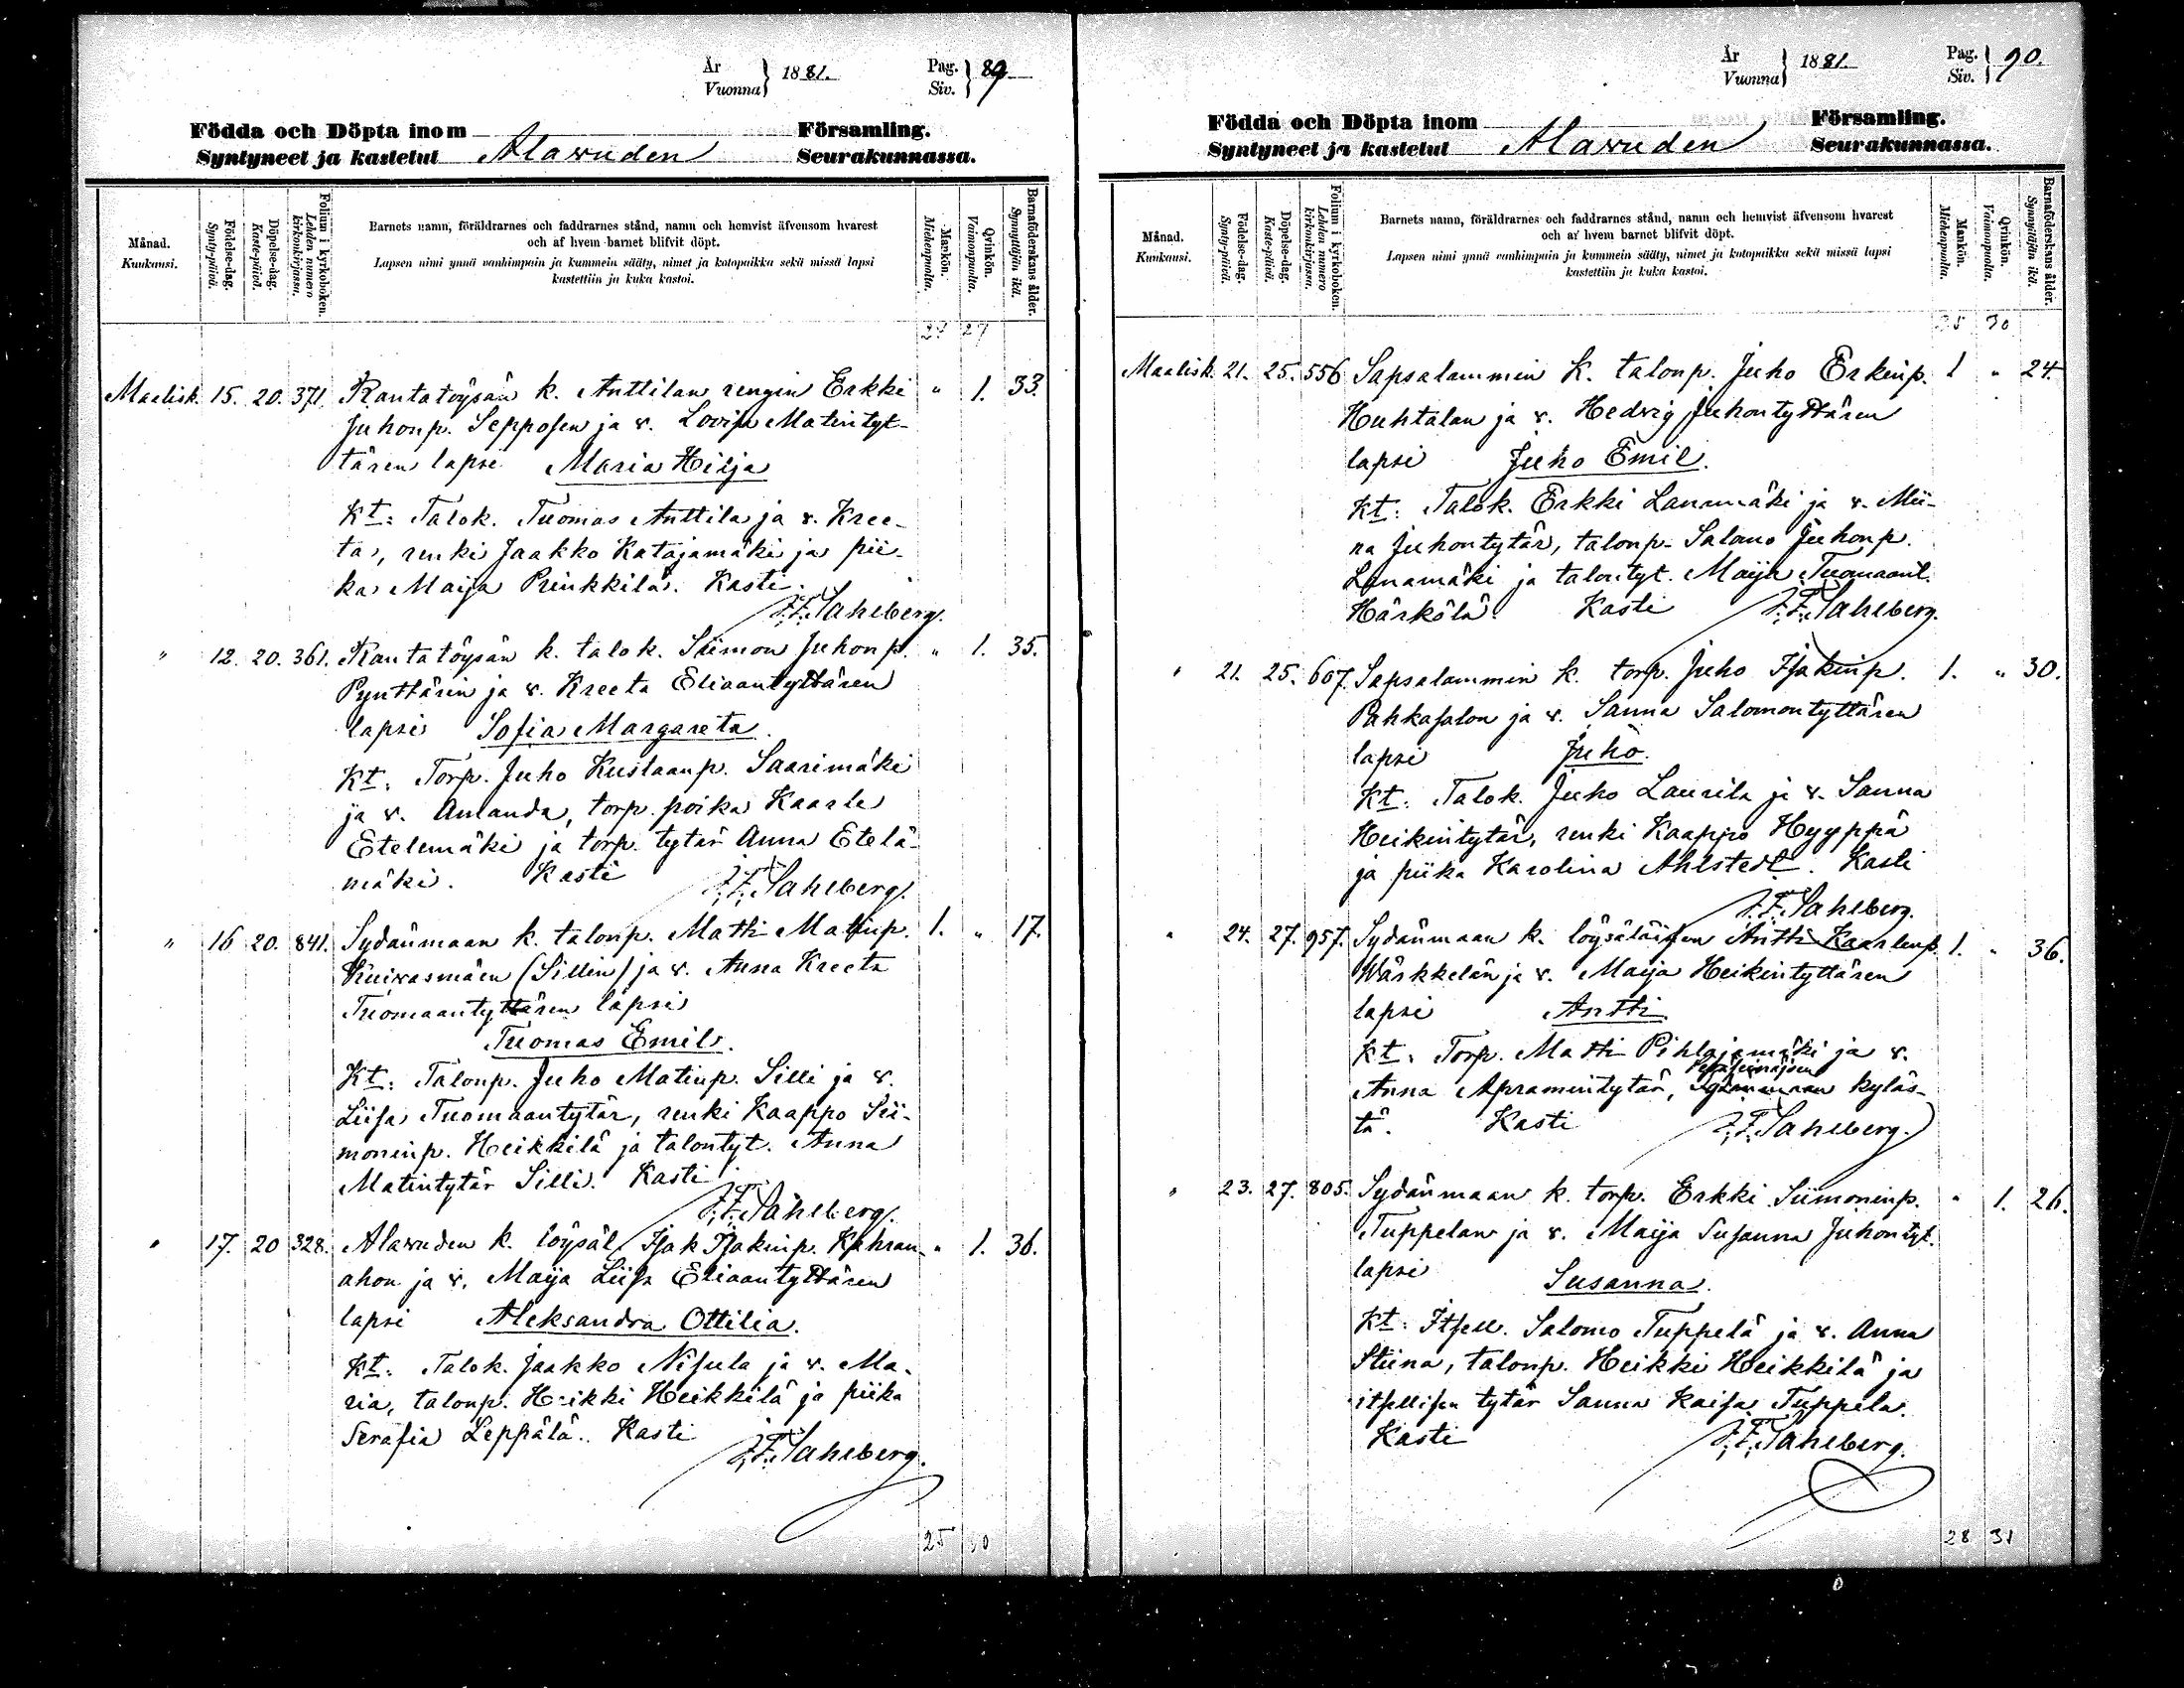 År
Vuonna } 1881.
Pag.
Siv. } 89
Födda och Döpta inom Församling.
Syntyneet ja kastetut Alawuden Seurakunnassa.
Månad.
Kuukausi.
Födelse-dag.
Synty-päivä.
Döpelse-dag.
Kaste-päivä.
Folium i kyrkoboken.
Lehden numero
kirkonkirjassa.
Barnets namn, föräldrarnes och faddrarnes stånd, namn och hemvist äfvensom hvarest
och af hvem barnet blifvit döpt.
Lapsen nimi ynnä vanhimpain ja kummein sääty, nimet ja kotopaikka sekä missä lapsi
kastettiin ja kuka kastoi.
Mankön.
Miehenpuolta.
Qvinkön.
Vaimonpuolta.
Barnaföderskans ålder.
Synnyttäjän ikä.
24 27
Maalisk. 15. 20. 371. Rantatöysän k. Anttilan rengin Erkki " 1. 33.
Juhonp. Sepposen ja v. Lovisa Matintyt-
tären lapsi Maria Hilja
Kt: Talok. Tuomas Anttila ja v. Kree-
ta, renki Jaakko Katajamäki ja pii-
ka Maija Prinkkilä. Kasti
J.F. Sahlberg.
" 12. 20. 361. Rantatöysän k. talok. Siimon Juhonp. " 1. 35.
Pynttärin ja v. Kreeta Eliaantyttären
lapsi Sofia Margareta.
Kt: Torp. Juho Kustaanp. Saarimäki
ja v. Amanda, torp. poika Kaarle
Etelemäki ja torp. tytär Anna Etelä-
mäki. Kasti J.F. Sahlberg.
" 16 20. 841. Sydänmaan k. talonp. Matti Matinp. 1. " 17.
Kuiwasmäen (Sillin) ja v. Anna Kreeta
Tuomaantyttären lapsi
Tuomas Emil.
Kt: Talonp. Juho Matinp. Silli ja v.
Liisa Tuomaantytär, renki Kaappo Sii-
moninp. Heikkilä ja talontyt. Anna
Matintytär Silli. Kasti
J.F. Sahlberg.
" 17. 20 328. Alawuden k. löysäl. Isak Isakinp. Kahran- " 1. 36.
ahon ja v. Maija Liisa Eliaantyttären
lapsi Aleksandra Ottilia.
Kt: Talok. Jaakko Nisula ja v. Ma-
ria, talonp. Heikki Heikkilä ja piika
Serafia Leppälä. Kasti
J.F. Sahlberg.
25 30
År
Vuonna } 1881.
Pag.
Siv. } 90.
Födda och Döpta inom Församling.
Syntyneet ja kastetut Alawuden Seurakunnassa.
Månad.
Kuukausi.
Födelse-dag.
Synty-päivä.
Döpelse-dag.
Kaste-päivä.
Folium i kyrkoboken.
Lehden numero
kirkonkirjassa.
Barnets namn, föräldrarnes och faddrarnes stånd, namn och hemvist äfvensom hvarest
och af hvem barnet blifvit döpt.
Lapsen nimi ynnä vanhimpain ja kummein sääty, nimet ja kotopaikka sekä missä lapsi
kastettiin ja kuka kastoi.
Mankön.
Miehenpuolta.
Qvinkön.
Vaimonpuolta.
Barnaföderskans ålder.
Synnyttäjän ikä.
25 30
Maalisk. 21. 25. 556 Sapsalammin k. talonp. Juho Erkinp. 1 " 24.
Huhtalan ja v. Hedvig Juhontyttären
lapsi Juho Emil.
Kt: Talok. Erkki Lanamäki ja v. Mii-
na Juhontytär, talonp. Salomo Juhonp.
Lanamäki ja talontyt. Maija Tuomaant.
Härkölä. Kasti J.F. Sahlberg.
" 21. 25. 607. Sapsalammin k. torp. Juho Isakinp. 1. " 30.
Pahkasalon ja v. Sanna Salomontyttären
lapsi Juho.
Kt: Talok. Juho Laurila ja v. Sanna
Heikintytär, renki Kaappo Hyyppä
ja piika Karolina Ahlstedt. Kasti
J.F. Sahlberg.
" 24. 27. 957. Sydänmaan k. löysäläisen Antti Kaarlenp. 1. " 36.
Wärkkelän ja v. Maija Heikintyttären
lapsi Antti
Kt: Torp. Matti Pihlajamäki ja v.
Peräseinäjoen
Anna Apramintytär, Sydänmaan kyläs-
tä. Kasti J.F. Sahlberg.
" 23. 27. 805. Sydänmaan k. torp. Erkki Siimoninp. " 1. 26.
Tuppelan ja v. Maija Susanna Juhontyt.
lapsi Susanna.
Kt: Itsell. Salomo Tuppelä ja v. Anna
Stiina, talonp. Heikki Heikkilä ja
itsellisen tytär Sanna Kaisa Tuppela.
Kasti J.F. Sahlberg.
28 31